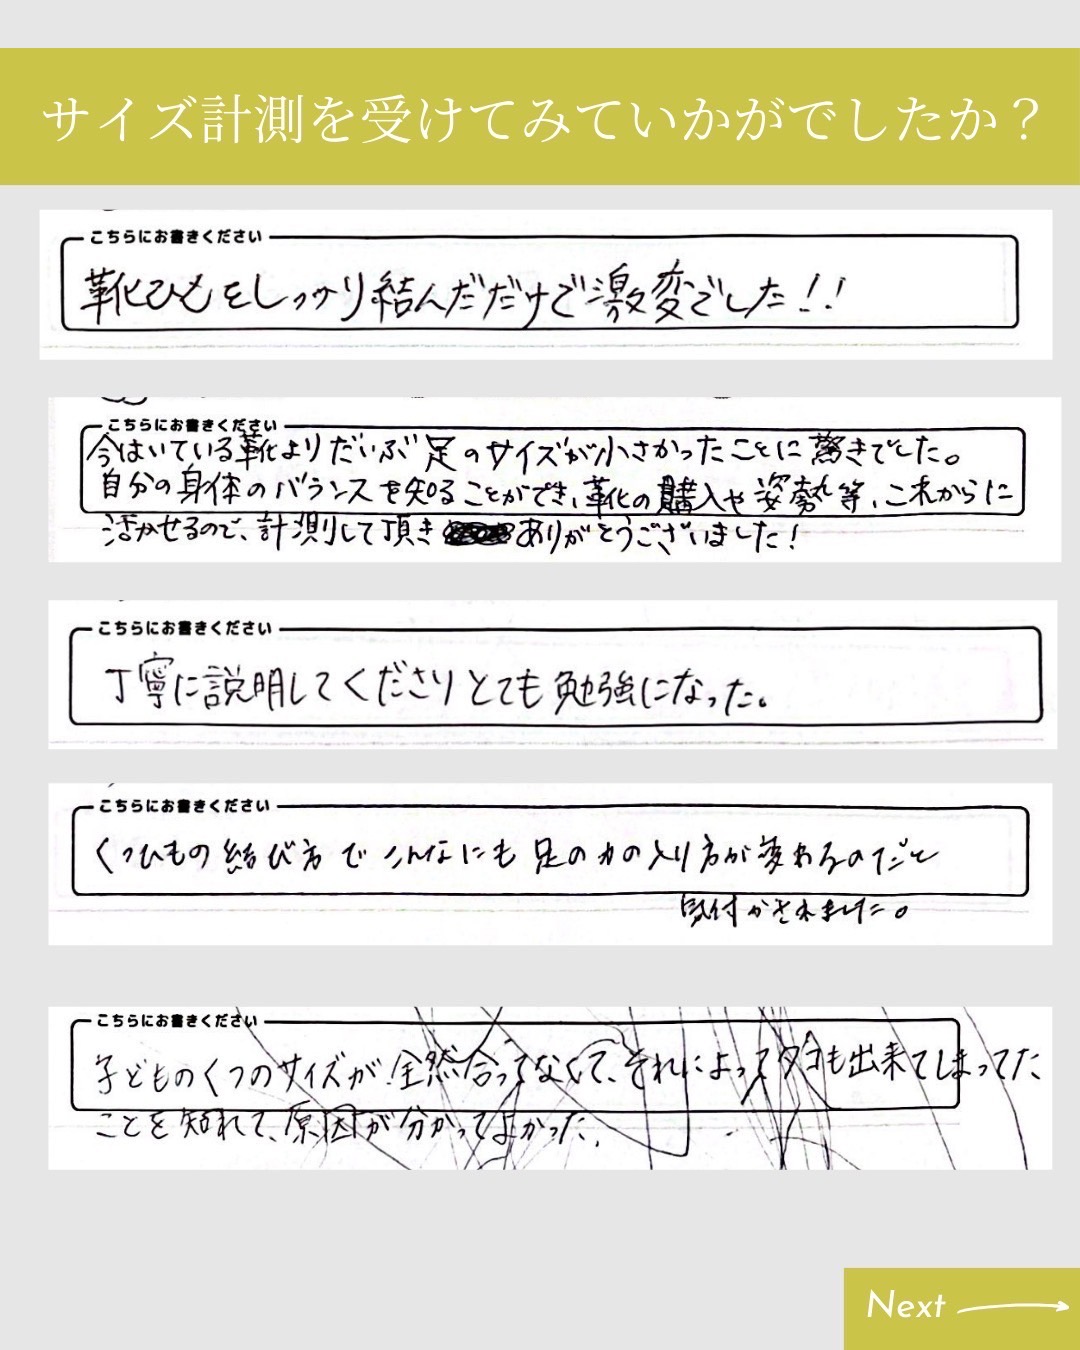 サイズ計測を受けてみていかがでしたか？
こちらにお書きください
靴ひもをしっかり結んだだけで激変でした！！
こちらにお書きください
今はいている靴よりだいぶ足のサイズが小さかったことに驚きでした。
自分の身体のバランスを知ることができ、靴の購入や姿勢等、これからに
活かせるので、計測して頂きありがとうございました！
こちらにお書きください
丁寧に説明してくださりとても勉強になった。
こちらにお書きください
くつひもの結び方でこんなにも足の力の入り方が変わるのだと
気付かされました。
こちらにお書きください
子どものくつのサイズが全然合ってなくて、それによってタコも出来てしまってた
ことを知れて、原因が分かってよかった。
Next